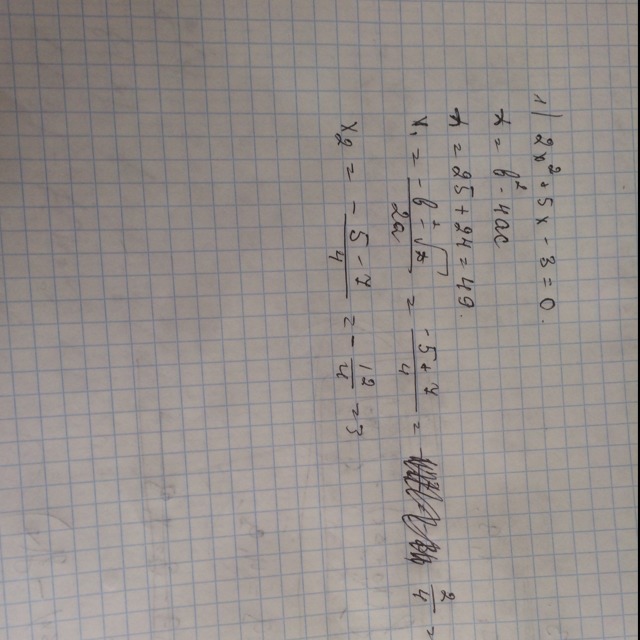 1) 2x² + 5x - 3 = 0.
D = b² - 4ac
D = 25 + 24 = 49.
x₁ = -b ± √D / 2a = -5 + 7 / 4 = 2/4 =
x₂ = - 5 - 7 / 4 = - 12/4 = 3